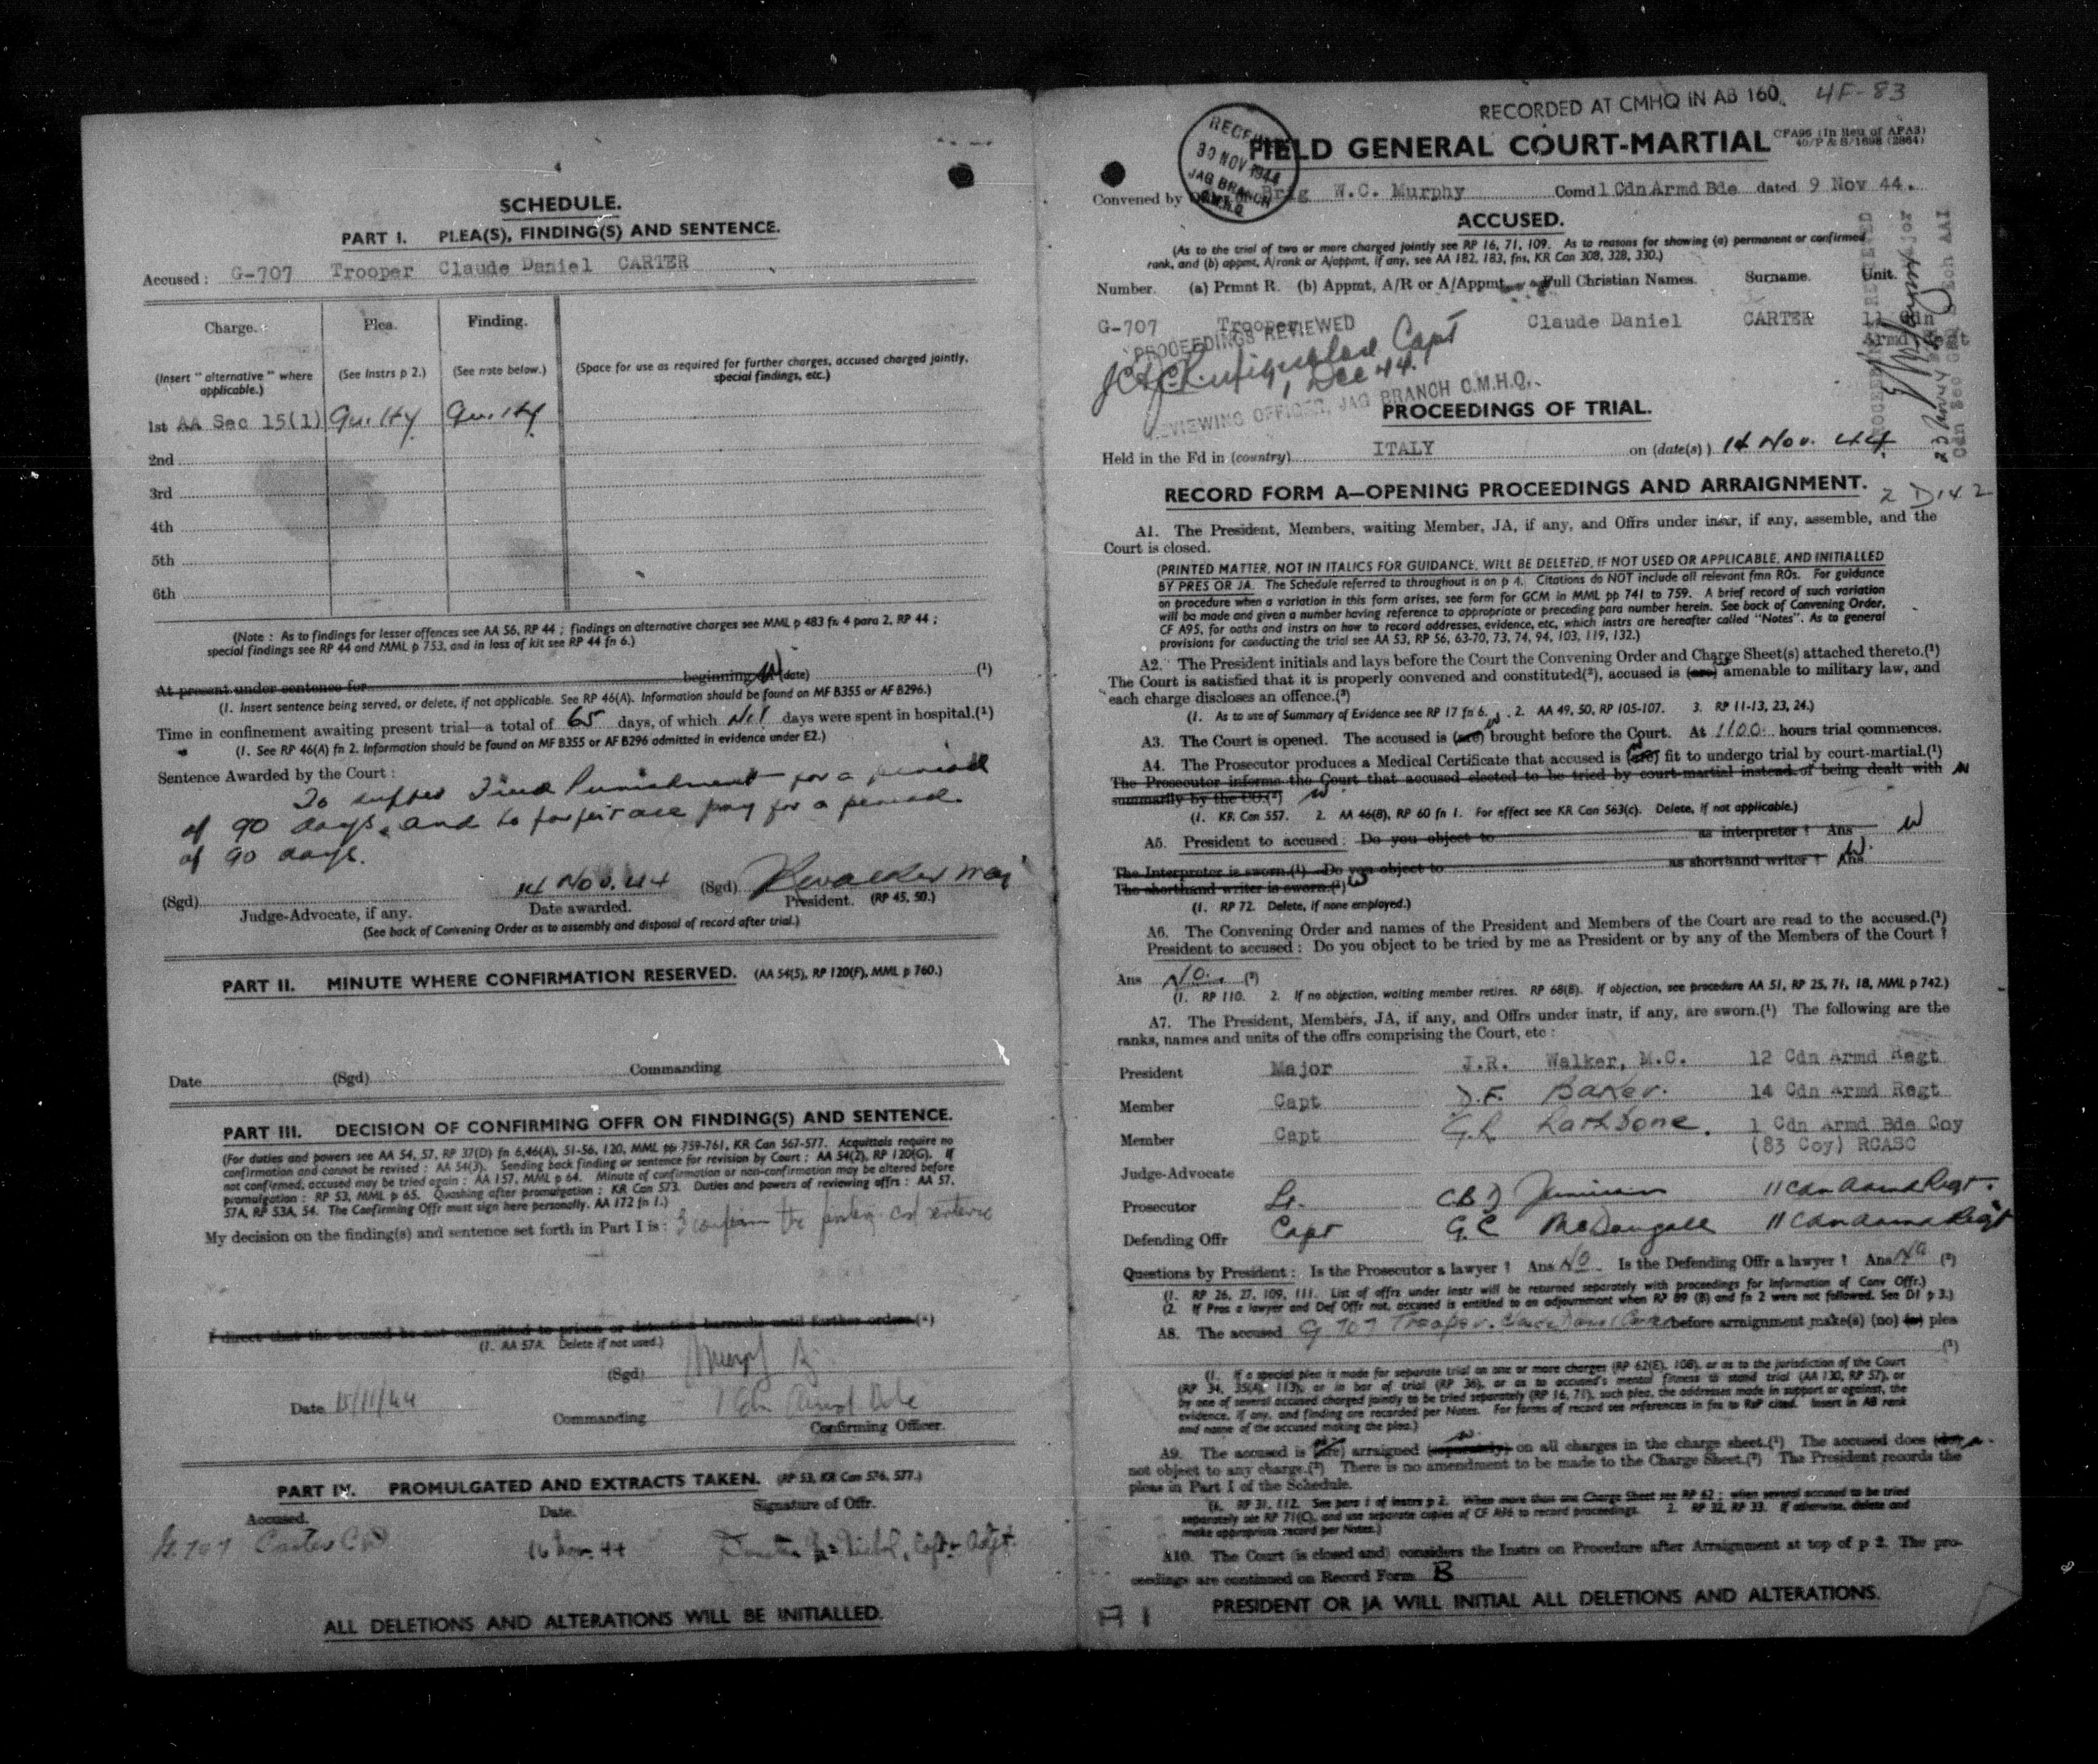 SCHEDULE.
PART I. PLEA(S), FINDING(S) AND SENTENCE.
Accused : G-707 Trooper Claude Daniel CARTER
Charge. Plea. Finding.
(Insert "alternative" where applicable.) (See Instrs p 2.) (See note below.) (Space for use as required for further charges, accused charged jointly, special findings, etc.)
1st AA Sec 15(1) Guilty Guilty
2nd
3rd
4th
5th
6th
(Note : As to findings for lesser offences see AA 56, RP 44 ; findings on alternative charges see MML p 483 fn 4 para 2, RP 44 ;
special findings see RP 44 and MML p 753, and in loss of kit see RP 44 fn 6.)
At present under sentence for beginning (date) (1)
(1. Insert sentence being served, or delete, if not applicable. See RP 46(A). Information should be found on MF B355 or AF B296.)
Time in confinement awaiting present trial—a total of 65 days, of which Nil days were spent in hospital.(1)
(1. See RP 46(A) fn 2. Information should be found on MF B355 or AF B296 admitted in evidence under E2.)
Sentence Awarded by the Court :
To suffer Field Punishment for a period
of 90 days, and to forfeit all pay for a period
of 90 days.
(Sgd) 14 Nov. 44 (Sgd) JRWalker Maj
Judge-Advocate, if any. Date awarded. President. (RP 45, 50.)
(See back of Convening Order as to assembly and disposal of record after trial.)
PART II. MINUTE WHERE CONFIRMATION RESERVED. (AA 54(5), RP 120(F), MML p 760.)
Date (Sgd) Commanding
PART III. DECISION OF CONFIRMING OFFR ON FINDING(S) AND SENTENCE.
(For duties and powers see AA 54, 57, RP 37(D) fn 6,46(A), 51-56, 120, MML pp 759-761, KR Can 567-577. Acquittals require no
confirmation and cannot be revised : AA 54(3). Sending back finding or sentence for revision by Court : AA 54(2), RP 120(G). If
not confirmed, accused may be tried again : AA 157, MML p 64. Minute of confirmation or non-confirmation may be altered before
promulgation : RP 53, MML p 65. Quashing after promulgation : KR Can 573. Duties and powers of reviewing offrs : AA 57,
57A, RP 53A, 54. The Confirming Offr must sign here personally. AA 172 fn 1.)
My decision on the finding(s) and sentence set forth in Part I is : I confirm the finding and sentence
I direct that the accused be not committed to prison or detention barracks until further orders.(1)
(1. AA 57A. Delete if not used.)
(Sgd) Murphy Bg
Date 15/11/44 Commanding 1 Cdn Armd Bde
Confirming Officer.
PART IV. PROMULGATED AND EXTRACTS TAKEN. (RP 53, KR Can 576, 577.)
Accused. Date. Signature of Offr.
G.707 Carter CD 16 Nov. 44 Capt. Adjt.
ALL DELETIONS AND ALTERATIONS WILL BE INITIALLED.
RECORDED AT CMHQ IN AB 160 4F-83
FIELD GENERAL COURT-MARTIAL CFA96 (In lieu of AFA3)
40/P & S/1698 (2864)
RECEIVED 30 NOV 1944 JAG BRANCH C.M.H.Q.
Convened by Brig W.C. Murphy Comd 1 Cdn Armd Bde dated 9 Nov 44.
ACCUSED.
(As to the trial of two or more charged jointly see RP 16, 71, 109. As to reasons for showing (a) permanent or confirmed
rank, and (b) appmt, A/rank or A/appmt, if any, see AA 182, 183, fns, KR Can 308, 328, 330.)
Number. (a) Prmnt R. (b) Appmt, A/R or A/Appmt Full Christian Names. Surname. Unit.
G-707 Trooper Claude Daniel CARTER 11 Cdn
Armd Regt
PROCEEDINGS REVIEWED
Capt
1 Dec 44.
REVIEWING OFFICER, JAG BRANCH C.M.H.Q.
PROCEEDINGS OF TRIAL.
Held in the Fd in (country) ITALY on (date(s)) 14 Nov. 44
RECORD FORM A—OPENING PROCEEDINGS AND ARRAIGNMENT. 2 D 14 2
A1. The President, Members, waiting Member, JA, if any, and Offrs under instr, if any, assemble, and the
Court is closed.
(PRINTED MATTER, NOT IN ITALICS FOR GUIDANCE, WILL BE DELETED, IF NOT USED OR APPLICABLE, AND INITIALLED
BY PRES OR JA. The Schedule referred to throughout is on p 4. Citations do NOT include all relevant fmn ROs. For guidance
on procedure when a variation in this form arises, see form for GCM in MML pp 741 to 759. A brief record of such variation
will be made and given a number having reference to appropriate or preceding para number herein. See back of Convening Order,
CF A95, for oaths and instrs on how to record addresses, evidence, etc, which instrs are hereafter called "Notes". As to general
provisions for conducting the trial see AA 53, RP 56, 63-70, 73, 74, 94, 103, 119, 132.)
A2. The President initials and lays before the Court the Convening Order and Charge Sheet(s) attached thereto.(1)
The Court is satisfied that it is properly convened and constituted(2), accused is (are) amenable to military law, and
each charge discloses an offence.(3)
(1. As to use of Summary of Evidence see RP 17 fn 6. 2. AA 49, 50, RP 105-107. 3. RP 11-13, 23, 24.)
A3. The Court is opened. The accused is (are) brought before the Court. At 1100 hours trial commences.
A4. The Prosecutor produces a Medical Certificate that accused is (are) fit to undergo trial by court-martial.(1)
The Prosecutor informs the Court that accused elected to be tried by court-martial instead of being dealt with
summarily by the CO.(2)
(1. KR Can 557. 2. AA 46(8), RP 60 fn 1. For effect see KR Can 563(c). Delete, if not applicable.)
A5. President to accused : Do you object to as interpreter ? Ans
The Interpreter is sworn.(1) Do you object to as shorthand writer ? Ans
The shorthand writer is sworn.(1)
(1. RP 72. Delete, if none employed.)
A6. The Convening Order and names of the President and Members of the Court are read to the accused.(1)
President to accused : Do you object to be tried by me as President or by any of the Members of the Court ?
Ans No. (2)
(1. RP 110. 2. If no objection, waiting member retires. RP 68(B). If objection, see procedure AA 51, RP 25, 71, 18, MML p 742.)
A7. The President, Members, JA, if any, and Offrs under instr, if any, are sworn.(1) The following are the
ranks, names and units of the offrs comprising the Court, etc :
President Major J.R. Walker, M.C. 12 Cdn Armd Regt
Member Capt D.F. Baker. 14 Cdn Armd Regt
Member Capt G.R. Rathbone. 1 Cdn Armd Bde Coy
(83 Coy) RCASC
Judge-Advocate
Prosecutor Lt. 11 Cdn Armd Regt.
Defending Offr Capt G.C McDougall 11 Cdn Armd Regt
Questions by President : Is the Prosecutor a lawyer ? Ans No. Is the Defending Offr a lawyer ? Ans No (2)
(1. RP 26, 27, 109, 111. List of offrs under instr will be returned separately with proceedings for information of Conv Offr.)
(2. If Pros a lawyer and Def Offr not, accused is entitled to an adjournment when RP 89 (B) and fn 2 were not followed. See D1 p 3.)
A8. The accused G 707 Trooper. Claude Daniel Carter before arraignment make(s) (no) (a) plea
(1)
(1. If a special plea is made for separate trial on one or more charges (RP 62(E), 108), or as to the jurisdiction of the Court
(RP 34, 35(A), 113), or in bar of trial (RP 36), or as to accused's mental fitness to stand trial (AA 130, RP 57), or
by one of several accused charged jointly to be tried separately (RP 16, 71), such plea, the addresses made in support or against, the
evidence, if any, and finding are recorded per Notes. For forms of record see references in fns to RsP cited. Insert in A8 rank
and name of the accused making the plea.)
A9. The accused is (are) arraigned (separately) on all charges in the charge sheet.(1) The accused does (do)
not object to any charge.(2) There is no amendment to be made to the Charge Sheet.(3) The President records the
pleas in Part I of the Schedule.
(1. RP 31, 112. See para 1 of Instrs p 2. When more than one Charge Sheet see RP 62 ; when several accused to be tried
separately see RP 71(C), and use separate copies of CF A96 to record proceedings. 2. RP 32, RP 33. If otherwise, delete and
make appropriate record per Notes.)
A10. The Court (is closed and) considers the Instrs on Procedure after Arraignment at top of p 2. The pro-
ceedings are continued on Record Form B
PRESIDENT OR JA WILL INITIAL ALL DELETIONS AND ALTERATIONS.
A 1